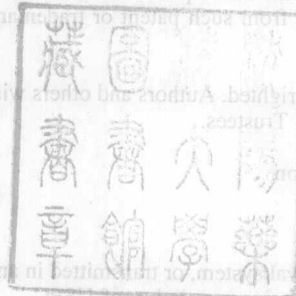 from such patent or
righted. Authors and others
Trustees.
system, or transmitted in
陽藥
大學
圖書館
藏書章